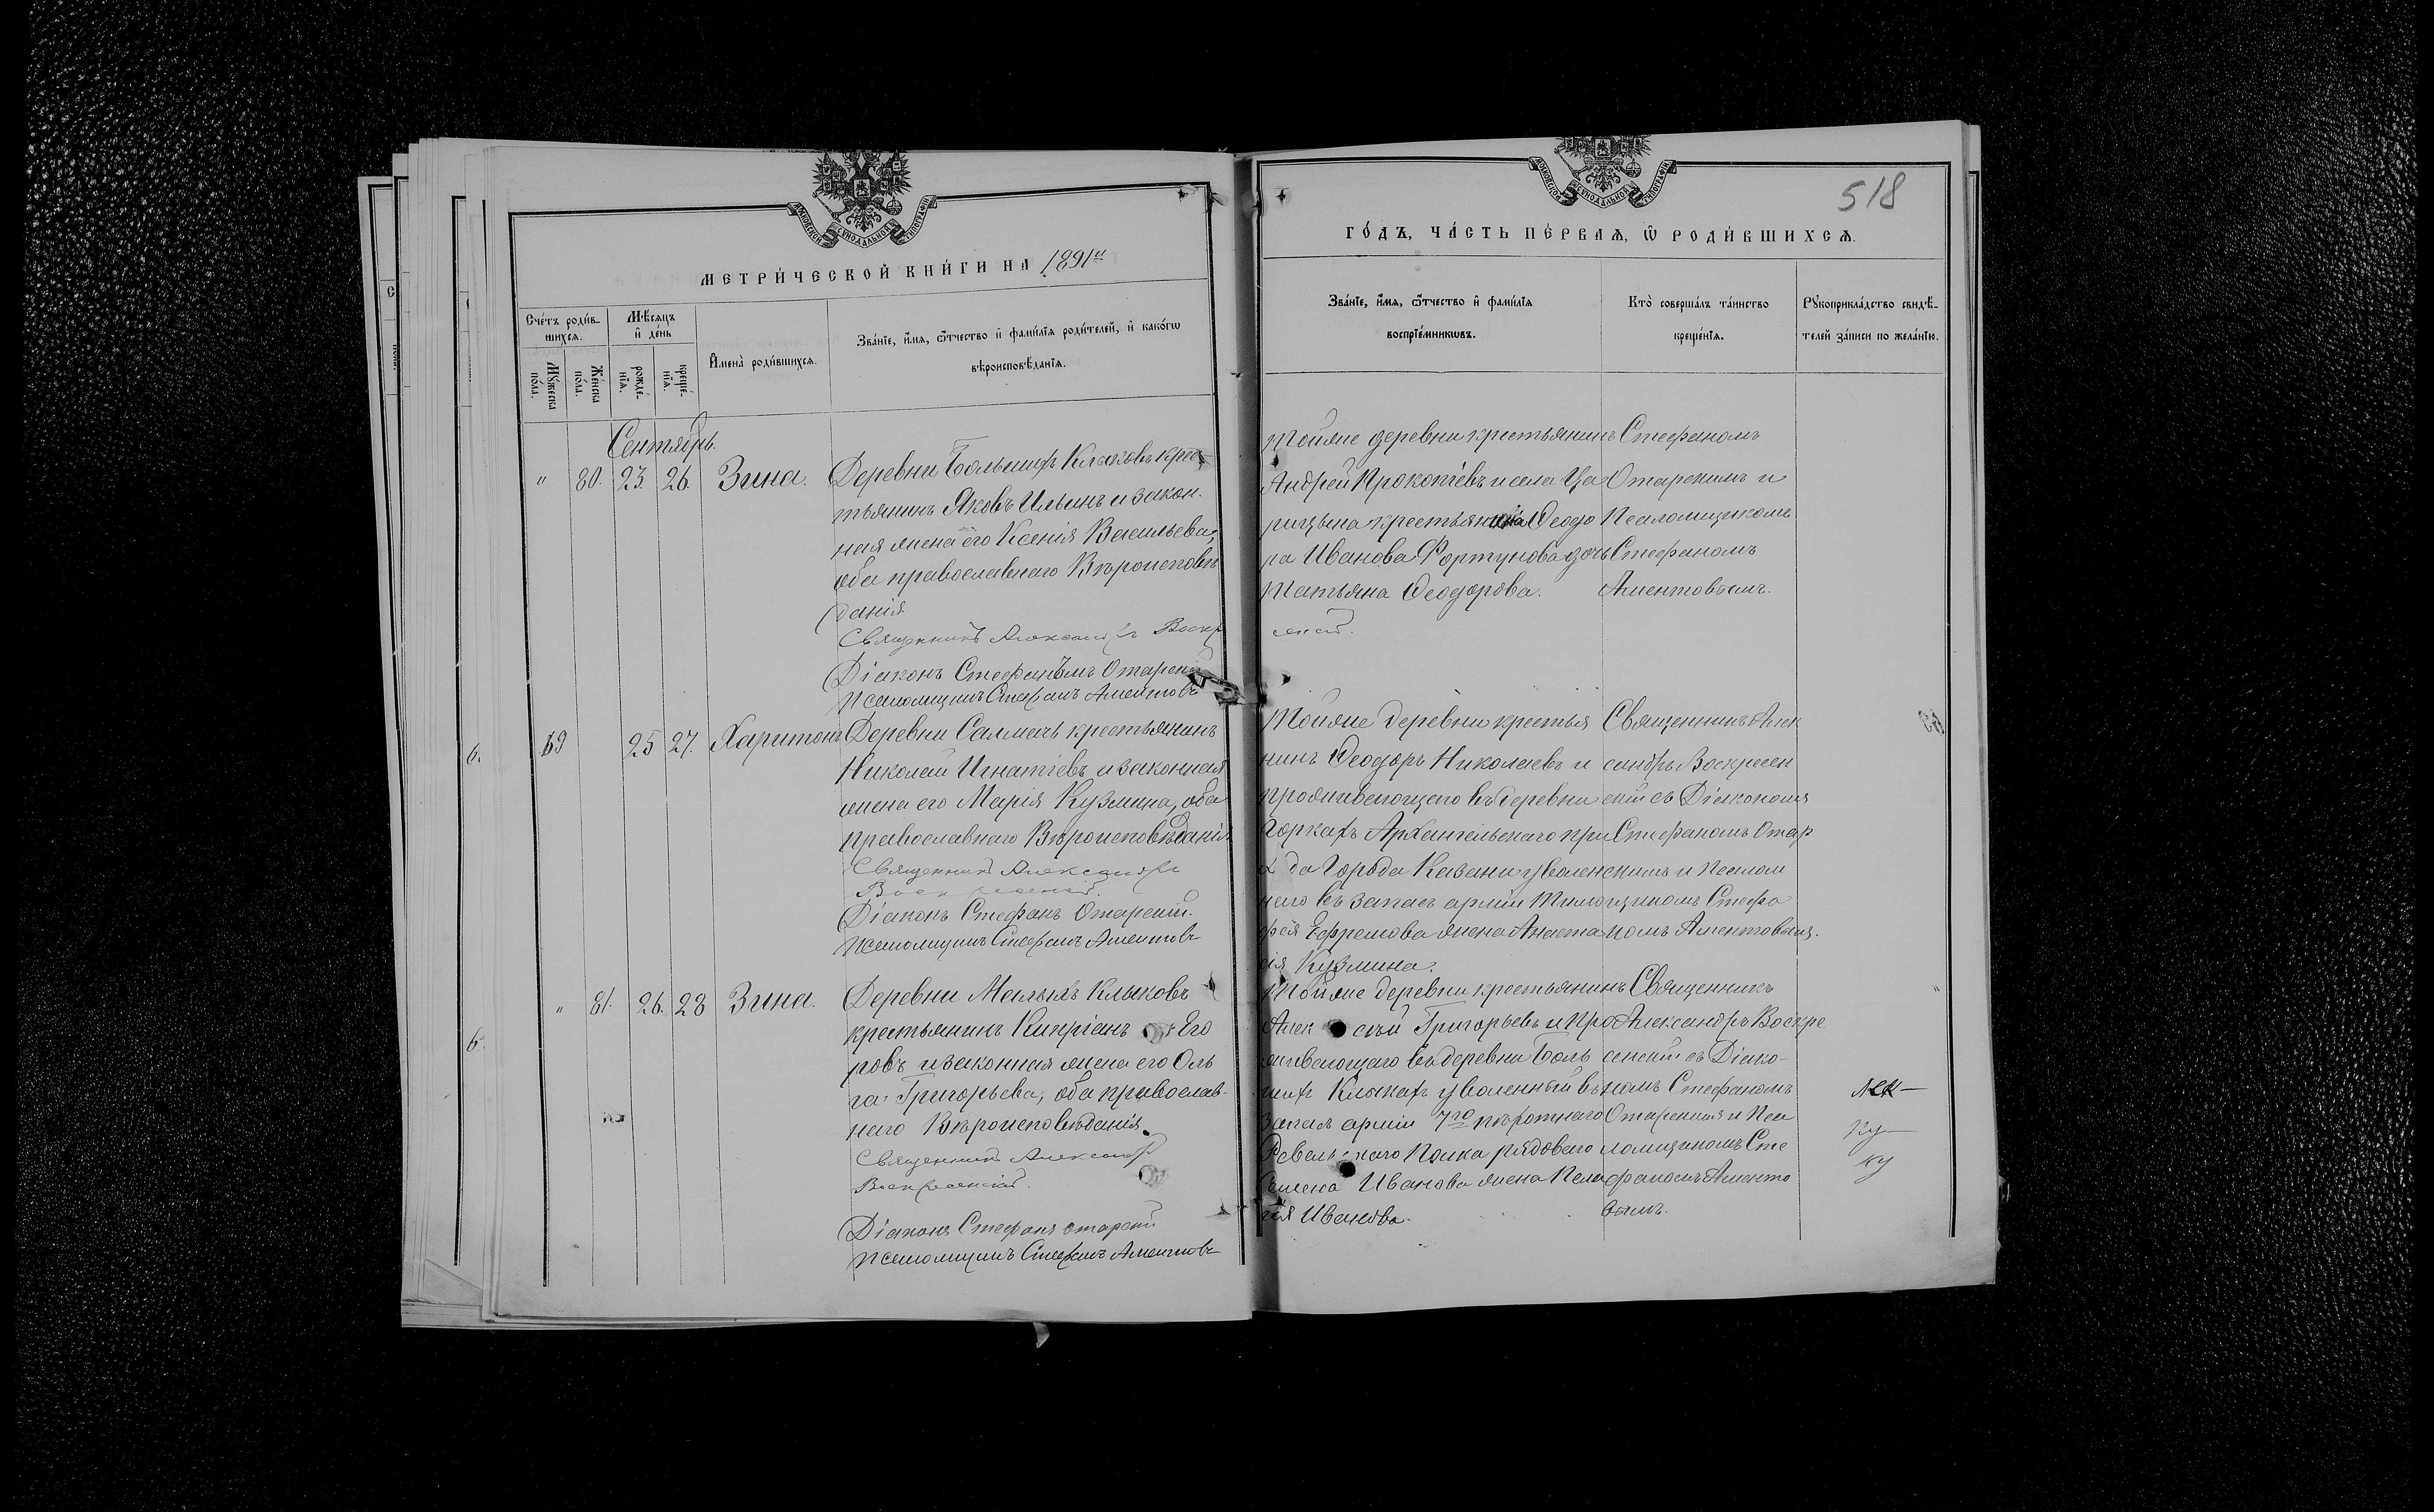 518
МЕТРИ́ЧЕСКОЙ КНИ́ГИ НА 1891й
ГО́ДЪ, ЧА́СТЬ ПЕ́РВАѦ, Ѿ РОДИ́ВШИХСѦ.
Сче́тъ роди́в-
шихсѧ.
Мꙋ́жеска
по́ла.
Же́нска
по́ла.
Мѣ́сѧцъ
и҆ де́нь
рожде́-
нїѧ.
креще́-
нїѧ.
И҆мена̀ роди́вшихсѧ.
Зва́нїе, и҆́мѧ, ѻ҆́тчество и҆ фами́лїѧ роди́телей, и҆ како́гѡ
вѣроисповѣ́данїѧ.
Зва́нїе, и҆́мѧ, ѻ҆́тчество и҆ фами́лїѧ
воспрїе́мникѡвъ.
Кто̀ соверша́лъ та́инство
креще́нїѧ.
Рꙋкоприкла́дство свидѣ́-
телей за́писи по жела́нїю.
Сентябрь.
" 80. 23. 26. Зина.
Деревни Большихъ Клыковъ крес
тьянинъ Яковъ Ильинъ и закон.
ная жена его Ксенія Васильева;
оба православнаго Вѣроисповѣ
данія
Священникъ Александръ Воскре
сенскій.
Діаконъ Стефанъ Отарскій
Псаломщикъ Стефанъ Аментовъ
Тойже деревни крестьянинъ
Андрей Прокопіевъ и села Ца
рицына крестьянина Ѳеодо
ра Иванова Фортунова дочь
Татьяна Ѳеодорова.
Стефаномъ
Отарскимъ и
Псаломщикомъ
Стефаномъ
Аментовымъ.
69 25 27. Харитонъ
Деревни Салмачь крестьянинъ
Николай Игнатіевъ и законная
жена его Марія Кузмина, оба
православнаго Вѣроисповѣданія
Священникъ Александръ
Воскресенскій.
Діаконъ Стефанъ Отарскій.
Псаломщикъ Стефанъ Аментовъ
Тойже деревни крестья
нинъ Ѳеодоръ Николаевъ и
проживающаго въ деревни
Горкахъ Архангельскаго при
хода Города Казани уволен
наго въ запасъ арміи Тимо
фея Ефремова жена Анаста
сія Кузмина.
Священникъ Алек
сандръ Воскресен
скій съ Діакономъ
Стефаномъ Отар
скимъ и Псалом
щикомъ Стефа
номъ Аментовымъ.
" 81. 26. 28 Зина.
Деревни Малыхъ Клыковъ
крестьянинъ Кипріанъ Его
ровъ и законная жена его Оль
га Григорьева, оба православ-
наго Вѣроисповѣданія.
Священникъ Александръ
Воскресенскій.
Діаконъ Стефанъ Отарскій
Псаломщикъ Стефанъ Аментовъ
Тойже деревни крестьянинъ
Алексѣй Григорьевъ и про
живающаго въ деревни Боль
шихъ Клыкахъ уволенный въ
запасъ арміи 7го пѣхотнаго
Ревельскаго Полка рядоваго
Иванова жена Пела
гія Иванова.
Священникъ
Александръ Воскре
сенскій съ Діако-
номъ Стефаномъ
Отарскимъ и Пса
ломщикомъ Сте
фаномъ Аменто
вымъ.